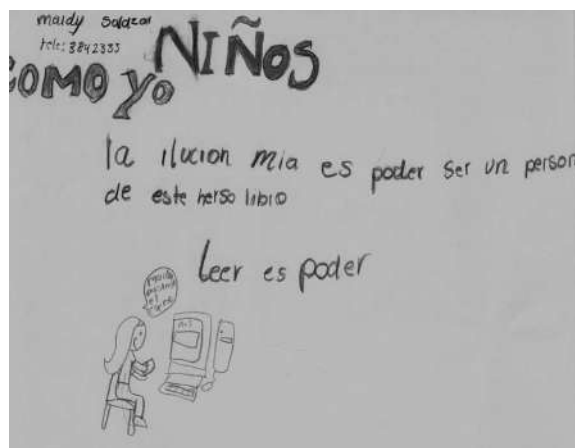 maidy Salazar
tele: 3842333
NIÑOS
COMO YO
la ilucion mia es poder ser un person
de este herso libro
Leer es poder